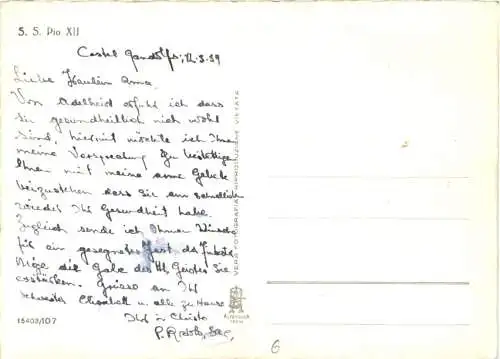 S. S. Pio XII
Castel Gandolfo, 12.8.59
Liebe Fräulein Anna.
Von Adelheid erfuhr ich dass
sie gesundheitlich nich wohl
sind, hiermit möchte ich Ihnen
meine Versprechung zu bestätigen
Ihnen mit meine arme Gebete
beizustehen dass Sie am schnellsten
wieder Ihr Gesundheit habe.
Zugleich sende ich Ihnen
für ein gesegnetes Fest des
Möge die Gabe des Hl. Geistes Sie
erstärken. Grüsse an Ihr
Schwester Elisabeth u. alle zu Hause
Ihr in Christo
P.
VERA FOTOGRAFIA RIPRODUZIONE VIETATA
15403/107
6